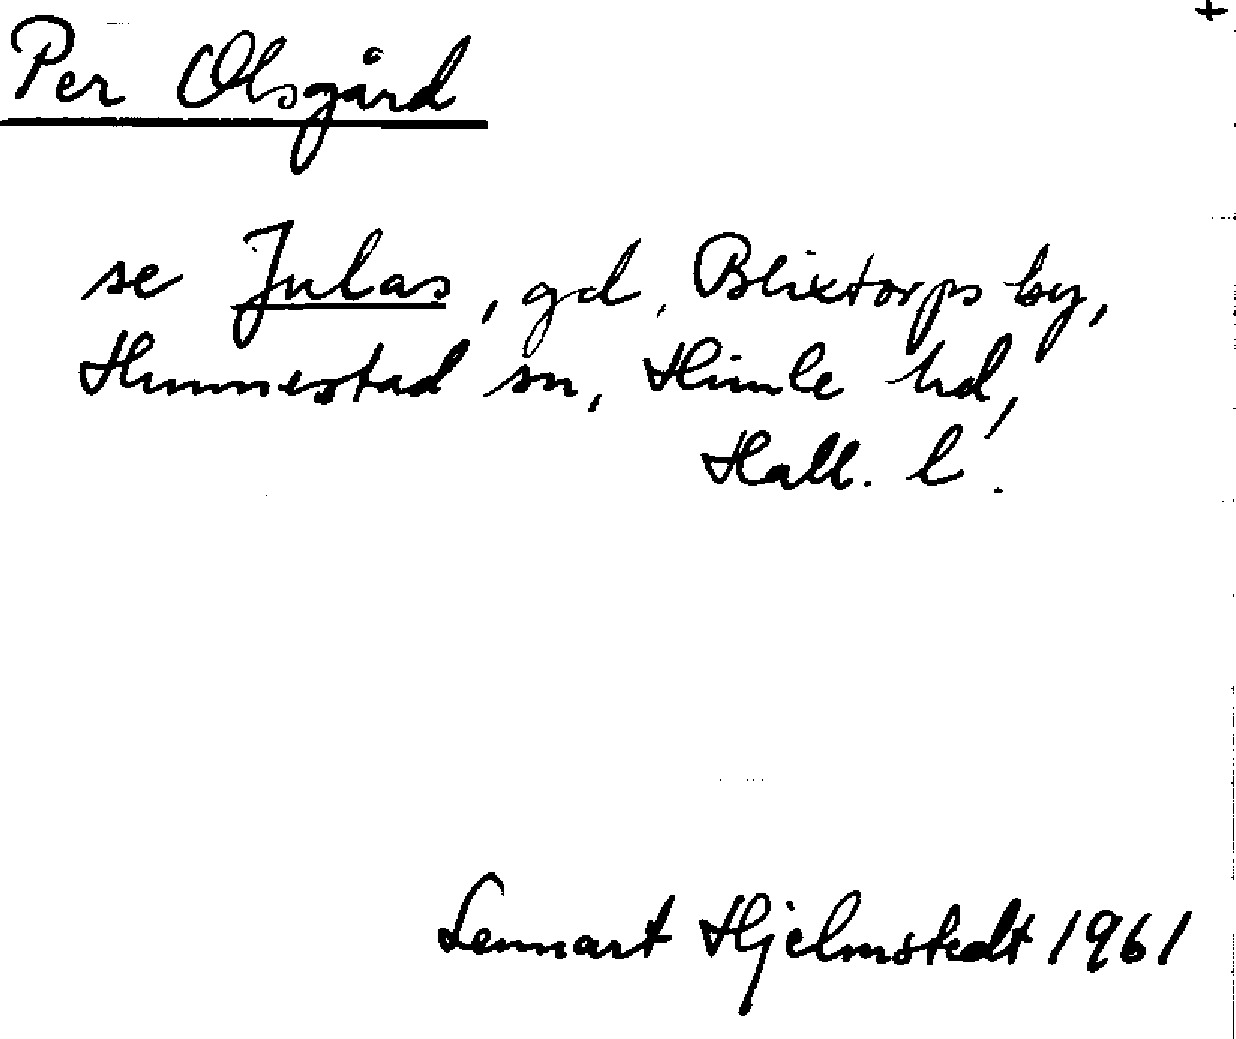 +
Per Olsgård
se Julas, gd, Blixtorps by,
Hunnestad sn, Himle hd,
Hall. l.
Lennart Hjelmstedt 1961